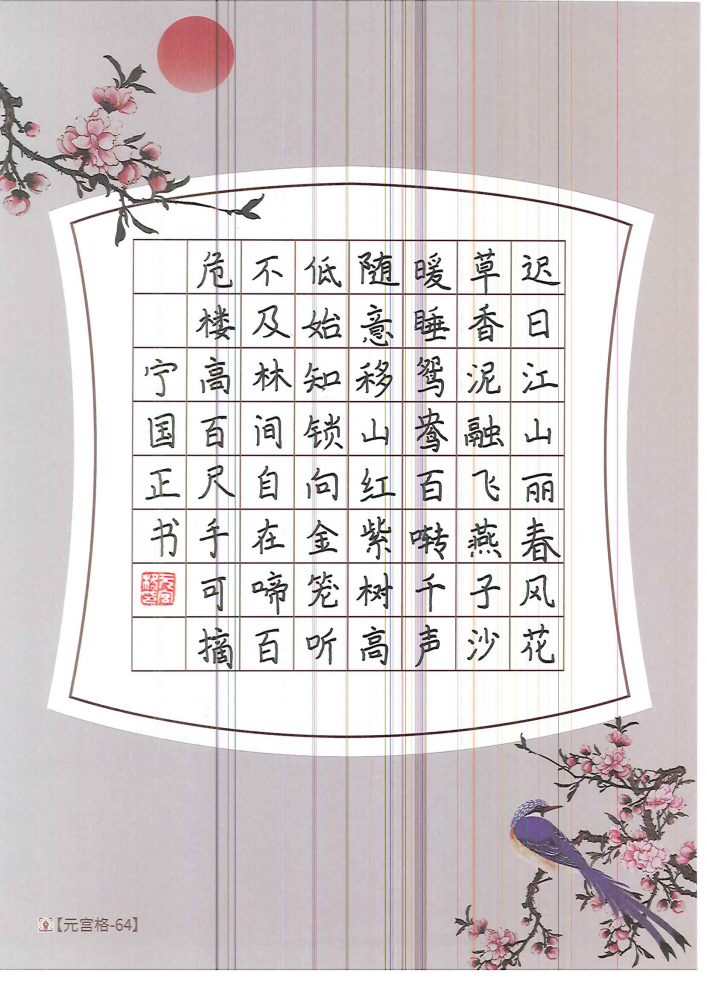 迟日江山丽春风花
草香泥融飞燕子沙
暖睡鸳鸯百啭千声
随意移山红紫树高
低始知锁向金笼听
不及林间自在啼百
危楼高百尺手可摘
宁国正书
【元宫格-64】